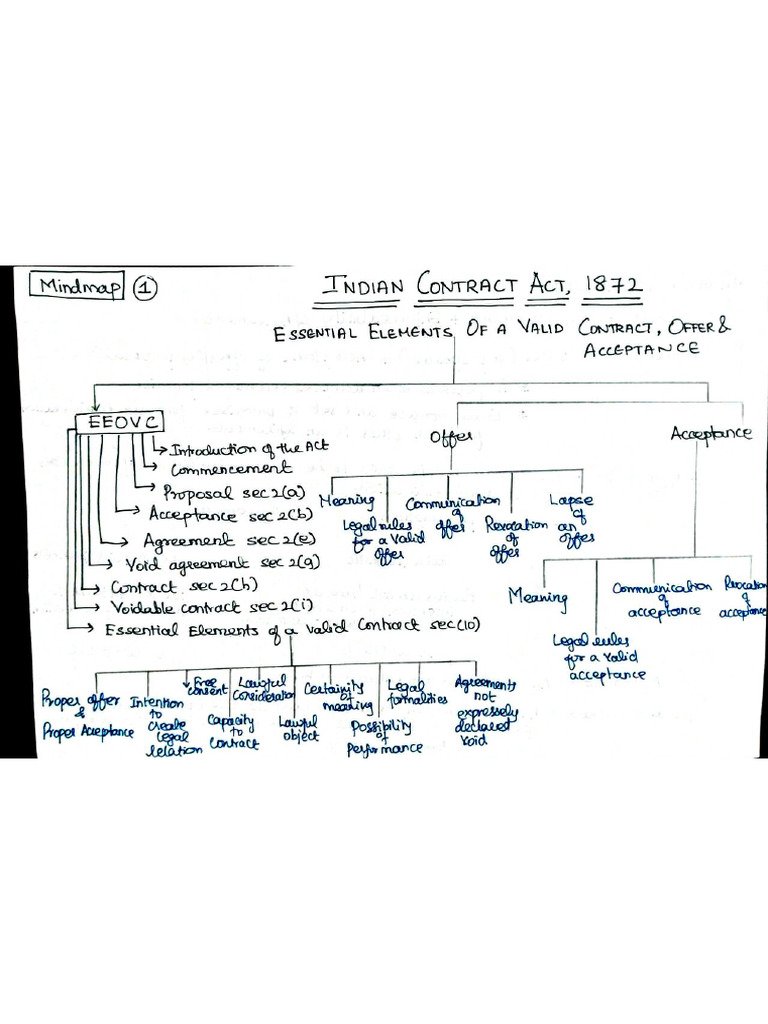 Mindmap 1
INDIAN CONTRACT ACT, 1872
ESSENTIAL ELEMENTS OF A VALID CONTRACT, OFFER &
ACCEPTANCE
EEOVC
Introduction of the Act
Commencement
Proposal sec 2(a)
Acceptance sec 2(b)
Agreement sec 2(e)
Void agreement sec 2(g)
Contract sec 2(h)
Voidable contract sec 2(i)
Essential Elements of a valid Contract sec(10)
Proper offer
&
Proper Acceptance
Intention
to
create
legal
relation
Free
consent
Capacity
to
contract
Lawful
consideration
Lawful
object
Certainity
of
meaning
Possibility
of
Performance
Legal
formalities
Agreements
not
expressely
declared
void
Offer
Meaning
Legal rules
for a valid
offer
Communication
of
offer
Revocation
of
offer
Lapse
of
an
offer
Acceptance
Meaning
Legal rules
for a valid
acceptance
Communication
of
acceptance
Revocation
of
acceptance